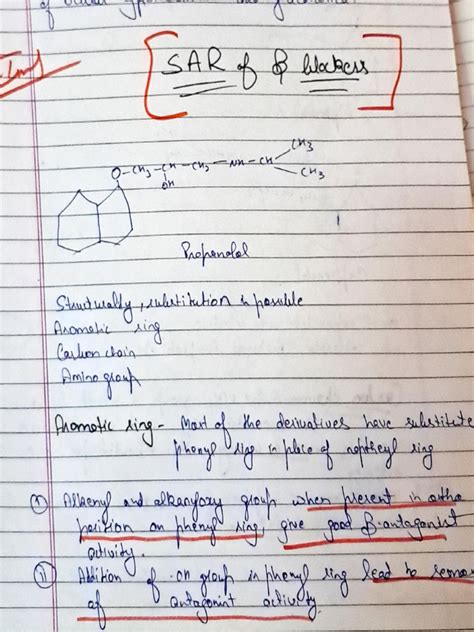 of
SAR of β blockers
O-CH2-CH-CH2-NH-CH
CH3
CH3
OH
Propanolol
Structurally, substitution is possible
Aromatic ring
Carbon chain
Amino group
Aromatic ring - Most of the derivatives have substitute
phenyl ring in place of napthyl ring
① Alkenyl and alkenyloxy group when present in ortho
position on phenyl ring, give good β-antagonist
activity.
② Addition of -OH group in phenyl ring lead to
of antagonist activity.